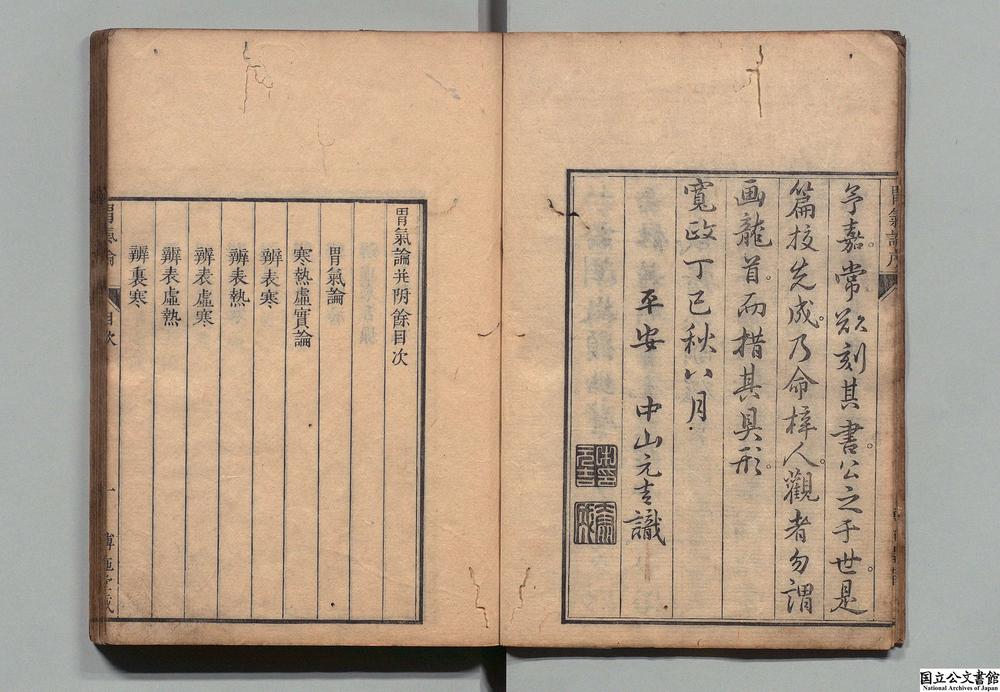 予嘉常欲刻其書。公之于世。是
篇挍先成。乃命梓人。觀者勿謂
画龍首。而措其具形。
寬政丁巳秋八月
平安 中山元吉識
胃氣論并附餘目次
胃氣論
寒熱虛實論
辨表寒
辨表熱
辨表虛寒
辨表虛熱
辨裏寒
胃氣論 目次 一
国立公文書館
National Archives of Japan